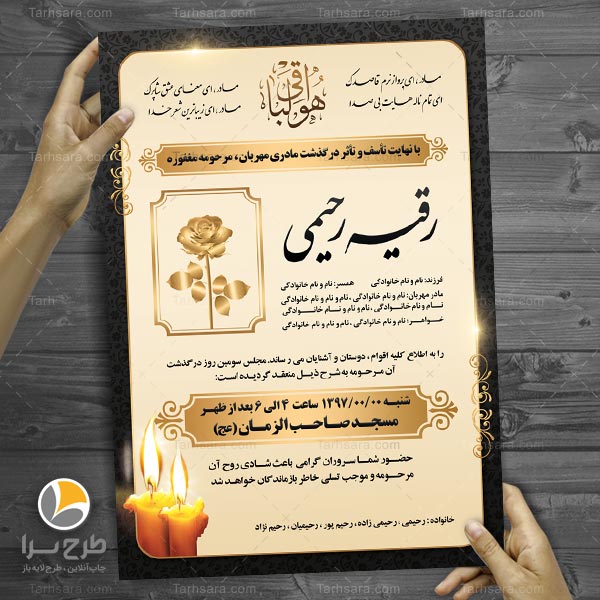 هوالباقی
مادر، ای پرواز نرم قاصدک
مادر، ای معنای عشق شاپرک
ای تمام ناله هایت بی صدا
مادر، ای زیباترین شعر خدا
با نهایت تأسف و تأثر درگذشت مادری مهربان، مرحومه مغفوره
رقیه رحیمی
فرزند: نام و نام خانوادگی همسر: نام و نام خانوادگی
مادر مهربان: نام و نام خانوادگی ، نام و نام و نام خانوادگی
نام و نام خانوادگی ، نام و نام و نام خانوادگی
خواهر: نام و نام خانوادگی ، نام و نام و نام خانوادگی
را به اطلاع کلیه اقوام ، دوستان و آشنایان می رساند. مجلس سومین روز درگذشت
آن مرحومه به شرح ذیل منعقد گردیده است:
شنبه ۱۳۹۷/۰۰/۰۰ ساعت ۴ الی ۶ بعد از ظهر
مسجد صاحب الزمان (عج)
حضور شما سروران گرامی باعث شادی روح آن
مرحومه و موجب تسلی خاطر بازماندگان خواهد شد
خانواده : رحیمی ، رحیمی زاده ، رحیم پور ، رحیمیان ، رحیم نژاد
طرح سرا
چاپ آنلاین ، طرح لایه باز
Tarhsara.com